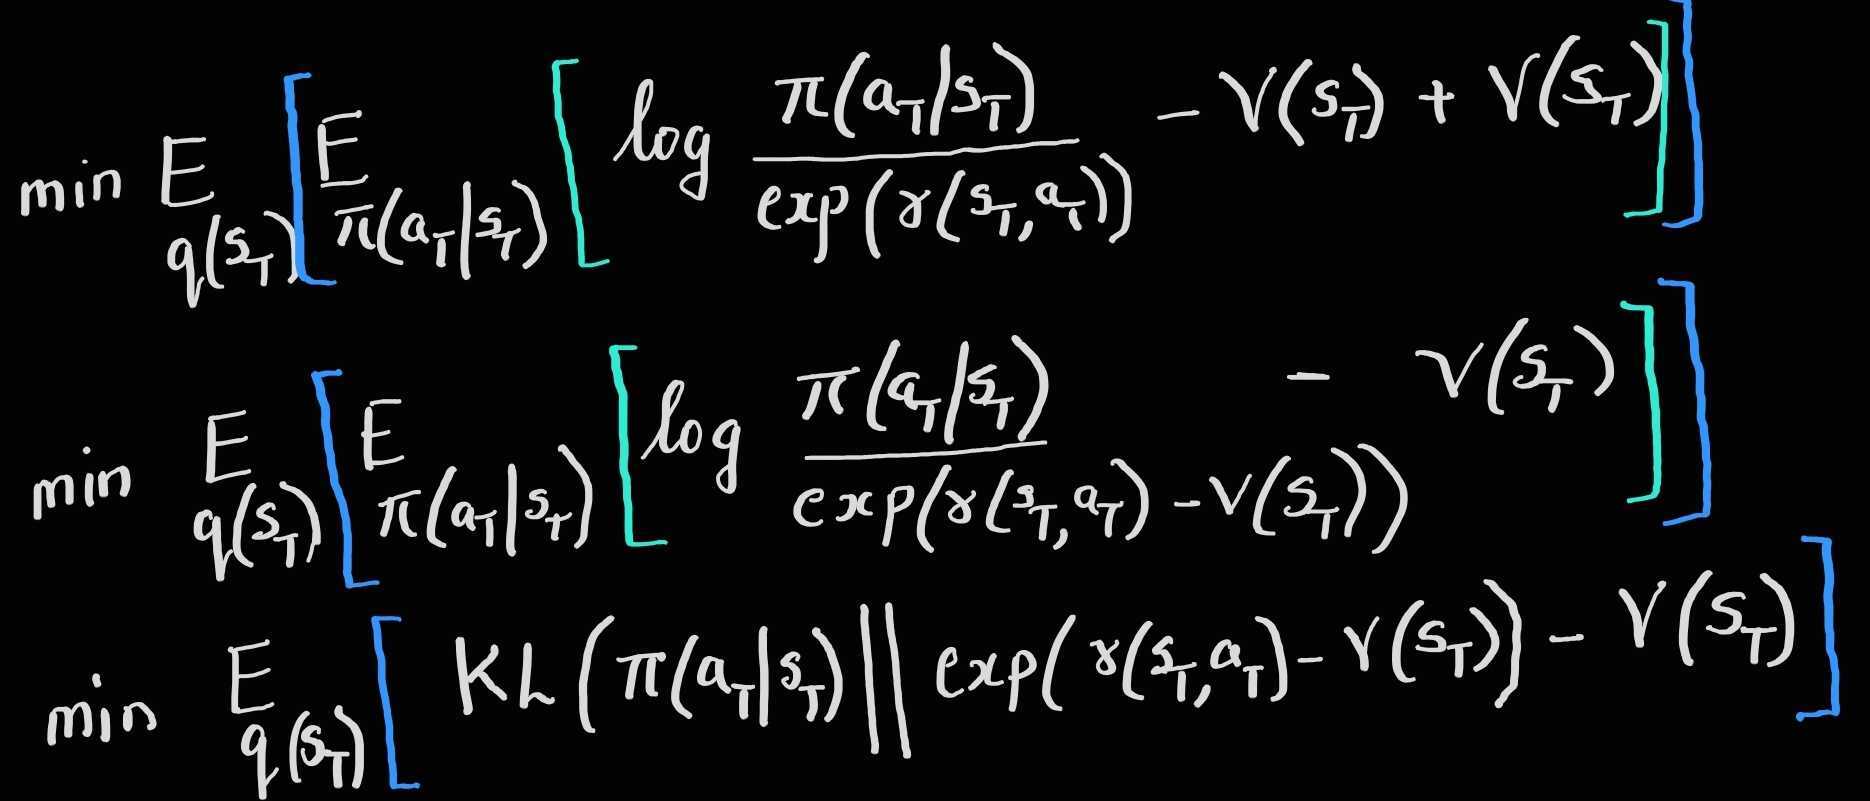 min E_{q(s_T)} [ E_{π(a_T|s_T)} [ log π(a_T|s_T) / exp(r(s_T, a_T)) - V(s_T) + V(s_T) ] ]
min E_{q(s_T)} [ E_{π(a_T|s_T)} [ log π(a_T|s_T) / exp(r(s_T, a_T) - V(s_T)) - V(s_T) ] ]
min E_{q(s_T)} [ KL( π(a_T|s_T) || exp( r(s_T, a_T) - V(s_T)) - V(s_T) ]